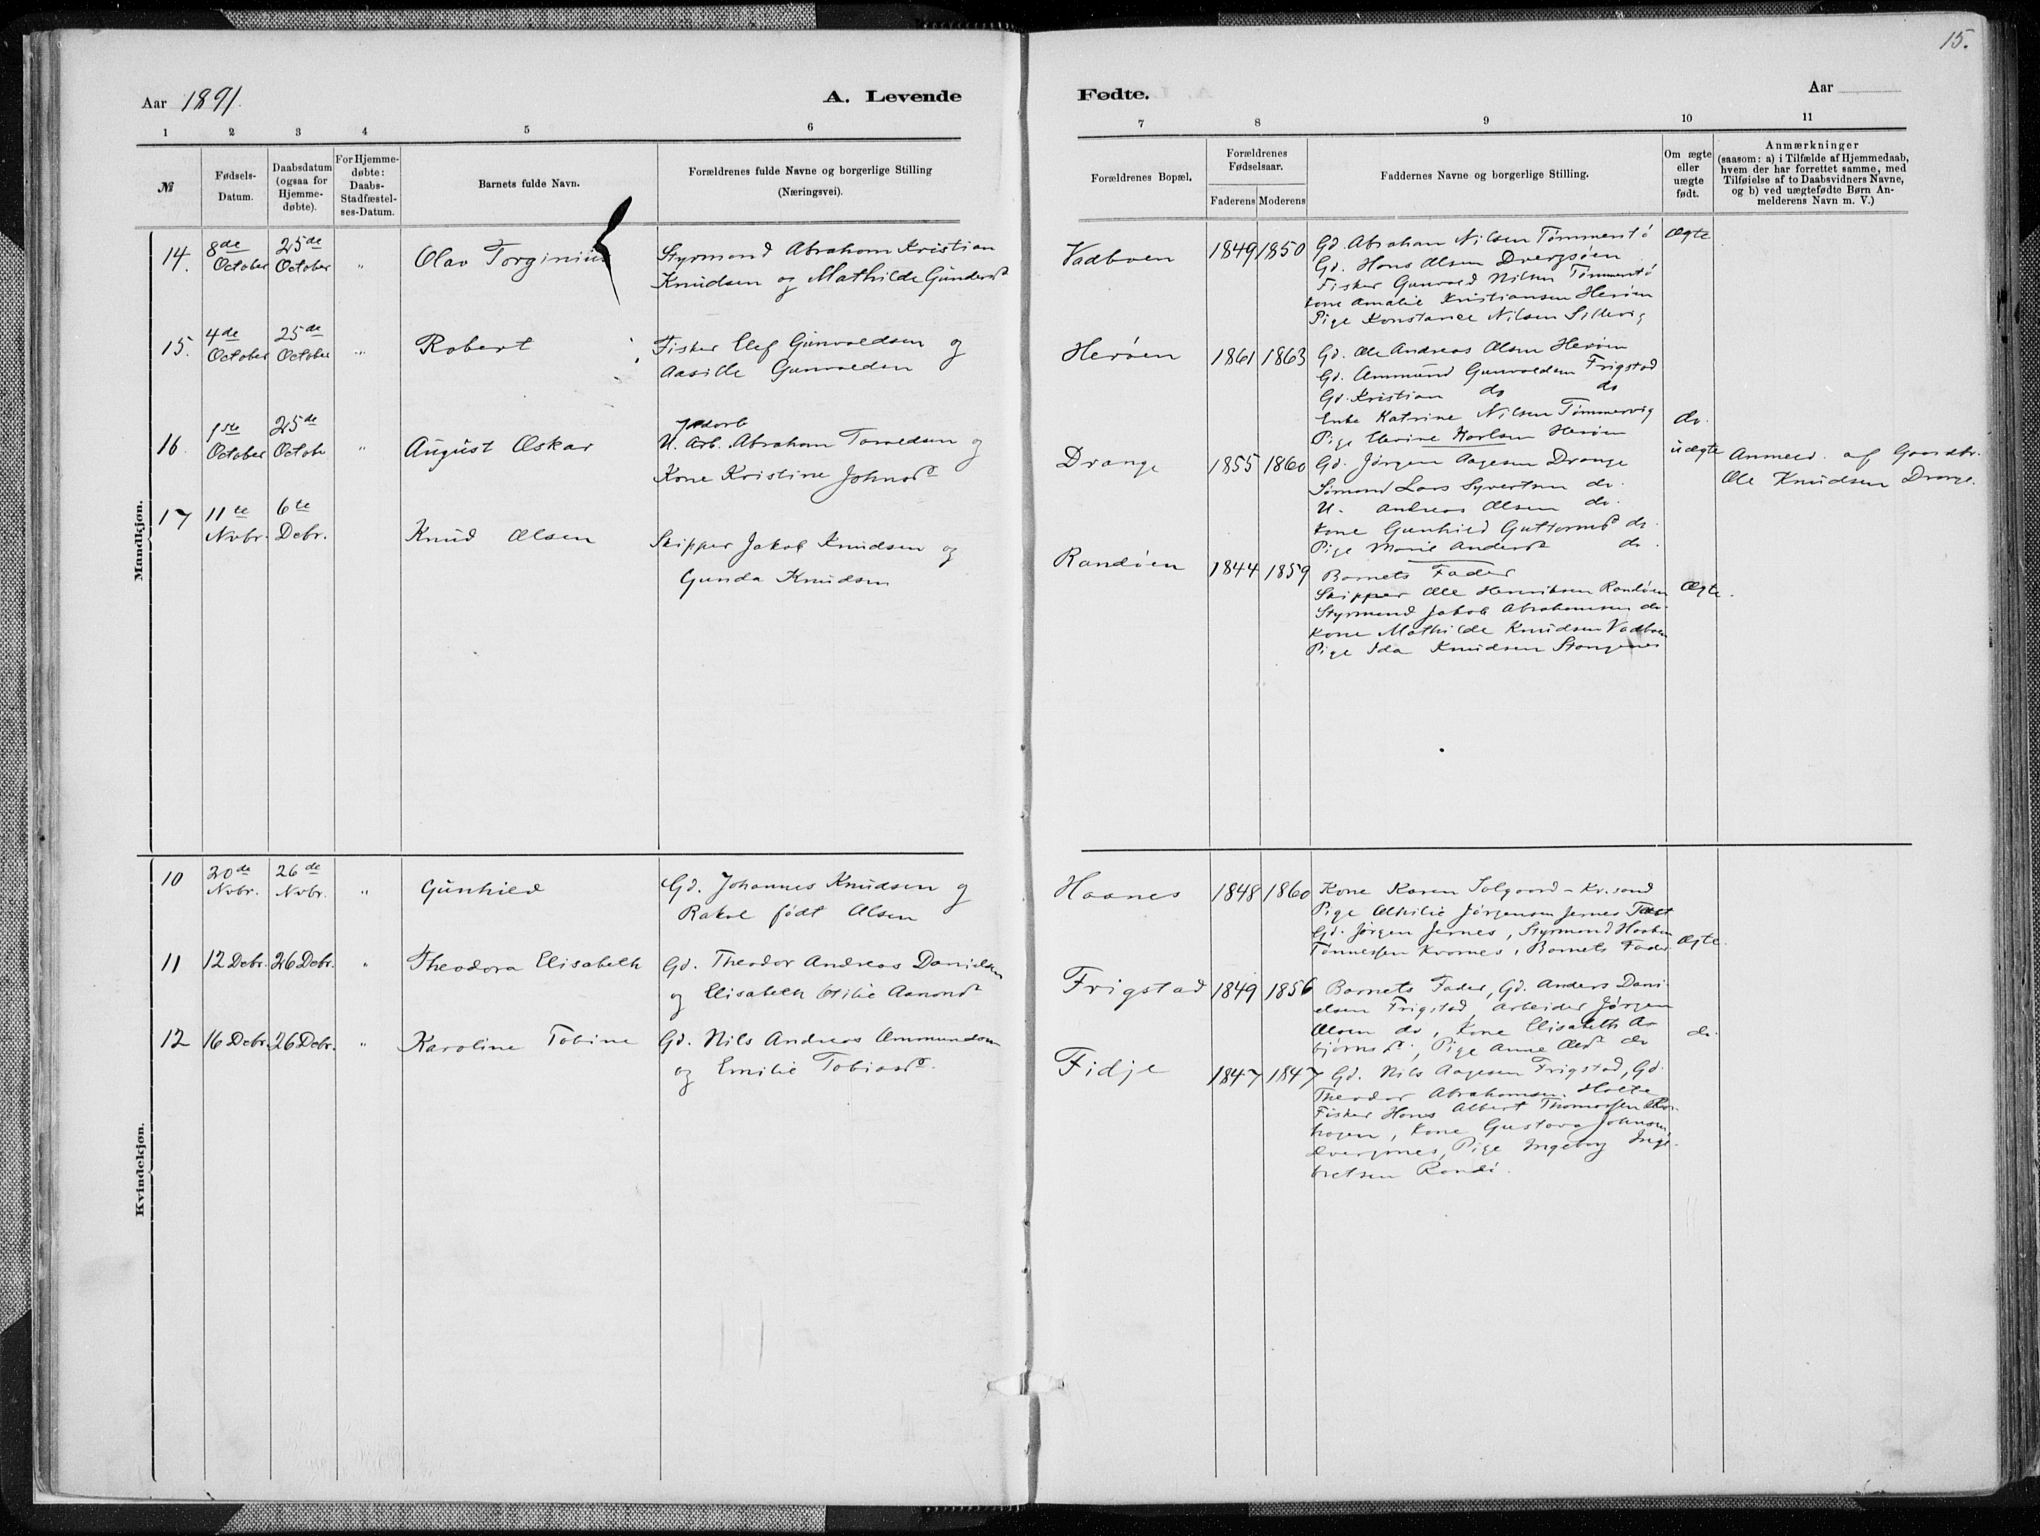 15.
Aar 1891.
A. Levende
Fødte.
Aar
1 2 3 4 5 6 7 8 9 10 11
№
Fødsels-
Datum.
Daabsdatum
(ogsaa for
Hjemme-
døbte).
For Hjemme-
døbte:
Daabs-
Stadfæstel-
ses-Datum.
Barnets fulde Navn.
Forældrenes fulde Navne og borgerlige Stilling
(Næringsvei).
Forældrenes Bopæl.
Forældrenes
Fødselsaar.
Faderens Moderens
Faddernes Navne og borgerlige Stilling.
Om ægte
eller
uægte
født.
Anmærkninger
(saasom: a) i Tilfælde af Hjemmedaab,
hvem der har forrettet samme, med
Tilføielse af to Daabsvidners Navne,
og b) ved uægtefødte Børn An-
melderens Navn m. V.)
Mandkjøn.
14. 8de October 25de October " Olav Torginius
Styrmand Abraham Kristian
Knudsen og Mathilde Gundersd
Vadboen 1849 1850
Gd. Abraham Nilsen Tømmerstø
Gd. Hans Olsen Dvergsøen
Fisker Gunvald Nilsen Tømmerstø
Kone Amalie Kristiansen Herøen
Pige Konstance Nilsen
Ægte
15. 4de October 25de October " Robert
Fisker Olef Gunvaldsen og
Aasille Gunvaldsen
Herøen 1861 1863
Gd. Ole Andreas Olsen Herøen
Gd. Ammund Gunvaldsen Frigstad
Gd. Kristian do do
Enke Katrine Nilsen Tømmervig
Pige Karlsen Herøen
do.
16. 1ste October 25de Octobe " August Oskar
Jordarb
U. Arb. Abraham Torvaldsen og
Kone Kristine Johnsd
Drange 1855 1860
Gd. Jørgen Aagesen Drange
Sømand Lars Syvertsen do.
U. Andreas Olsen do.
Kone Gunhild Guttormsd do.
Pige Marie Andersd do.
uægte
Anmeld. af Gaardbr.
Ole Knudsen Drange.
17 11te Nvbr. 6te Debr. Knud Olsen
Skipper Jakob Knudsen og
Gunda Knudsen
Randøen 1844 1859
Barnets Fader
Skipper Ole Henriksen Randøen
Styrmand Jakob Abrahamsen do.
Kone Mathilde Knudsen Vadboen
Pige Ida Knudsen Stangenes
Ægte.
Kvindekjøn.
10 20de Nvbr. 26de Nvbr. " Gunhild
Gd. Johannes Knudsen og
Rakel født Olsen
Haanes 1848 1860
Kone Karen Solgaard - Kr.sand
Pige Othilie Jørgensen Jernes
Gd. Jørgen Jernes, Styrmand Haaken
Tønnessen Kvarnes, Barnets Fader
Ægte.
11 12 Debr. 26 Debr. " Theodora Elisabeth
Gd. Theodor Andreas Danielsen
og Elisabeth Otilie Aanonsd
Frigstad 1849 1856
Barnets Fader, Gd. Anders Dani-
elsen Frigstad, Arbeider Jørgen
Olsen do, Kone Elisabeth As
bjørnsd., Pige Anne Olsd do
do.
12 16 Debr. 26 Debr. " Karoline Tobine
Gd. Nils Andreas Ommundsen
og Emilie Tobiasd.
Fidje 1847 1847
Gd. Nils Aagesen Frigstad, Gd.
Theodor Abrahamsen Holte
Fisker Hans Albert Thomassen
hagen, Kone Gustava Johnsen,
Dvergsnes, Pige Ingeborg Inge-
bretsen Randø.